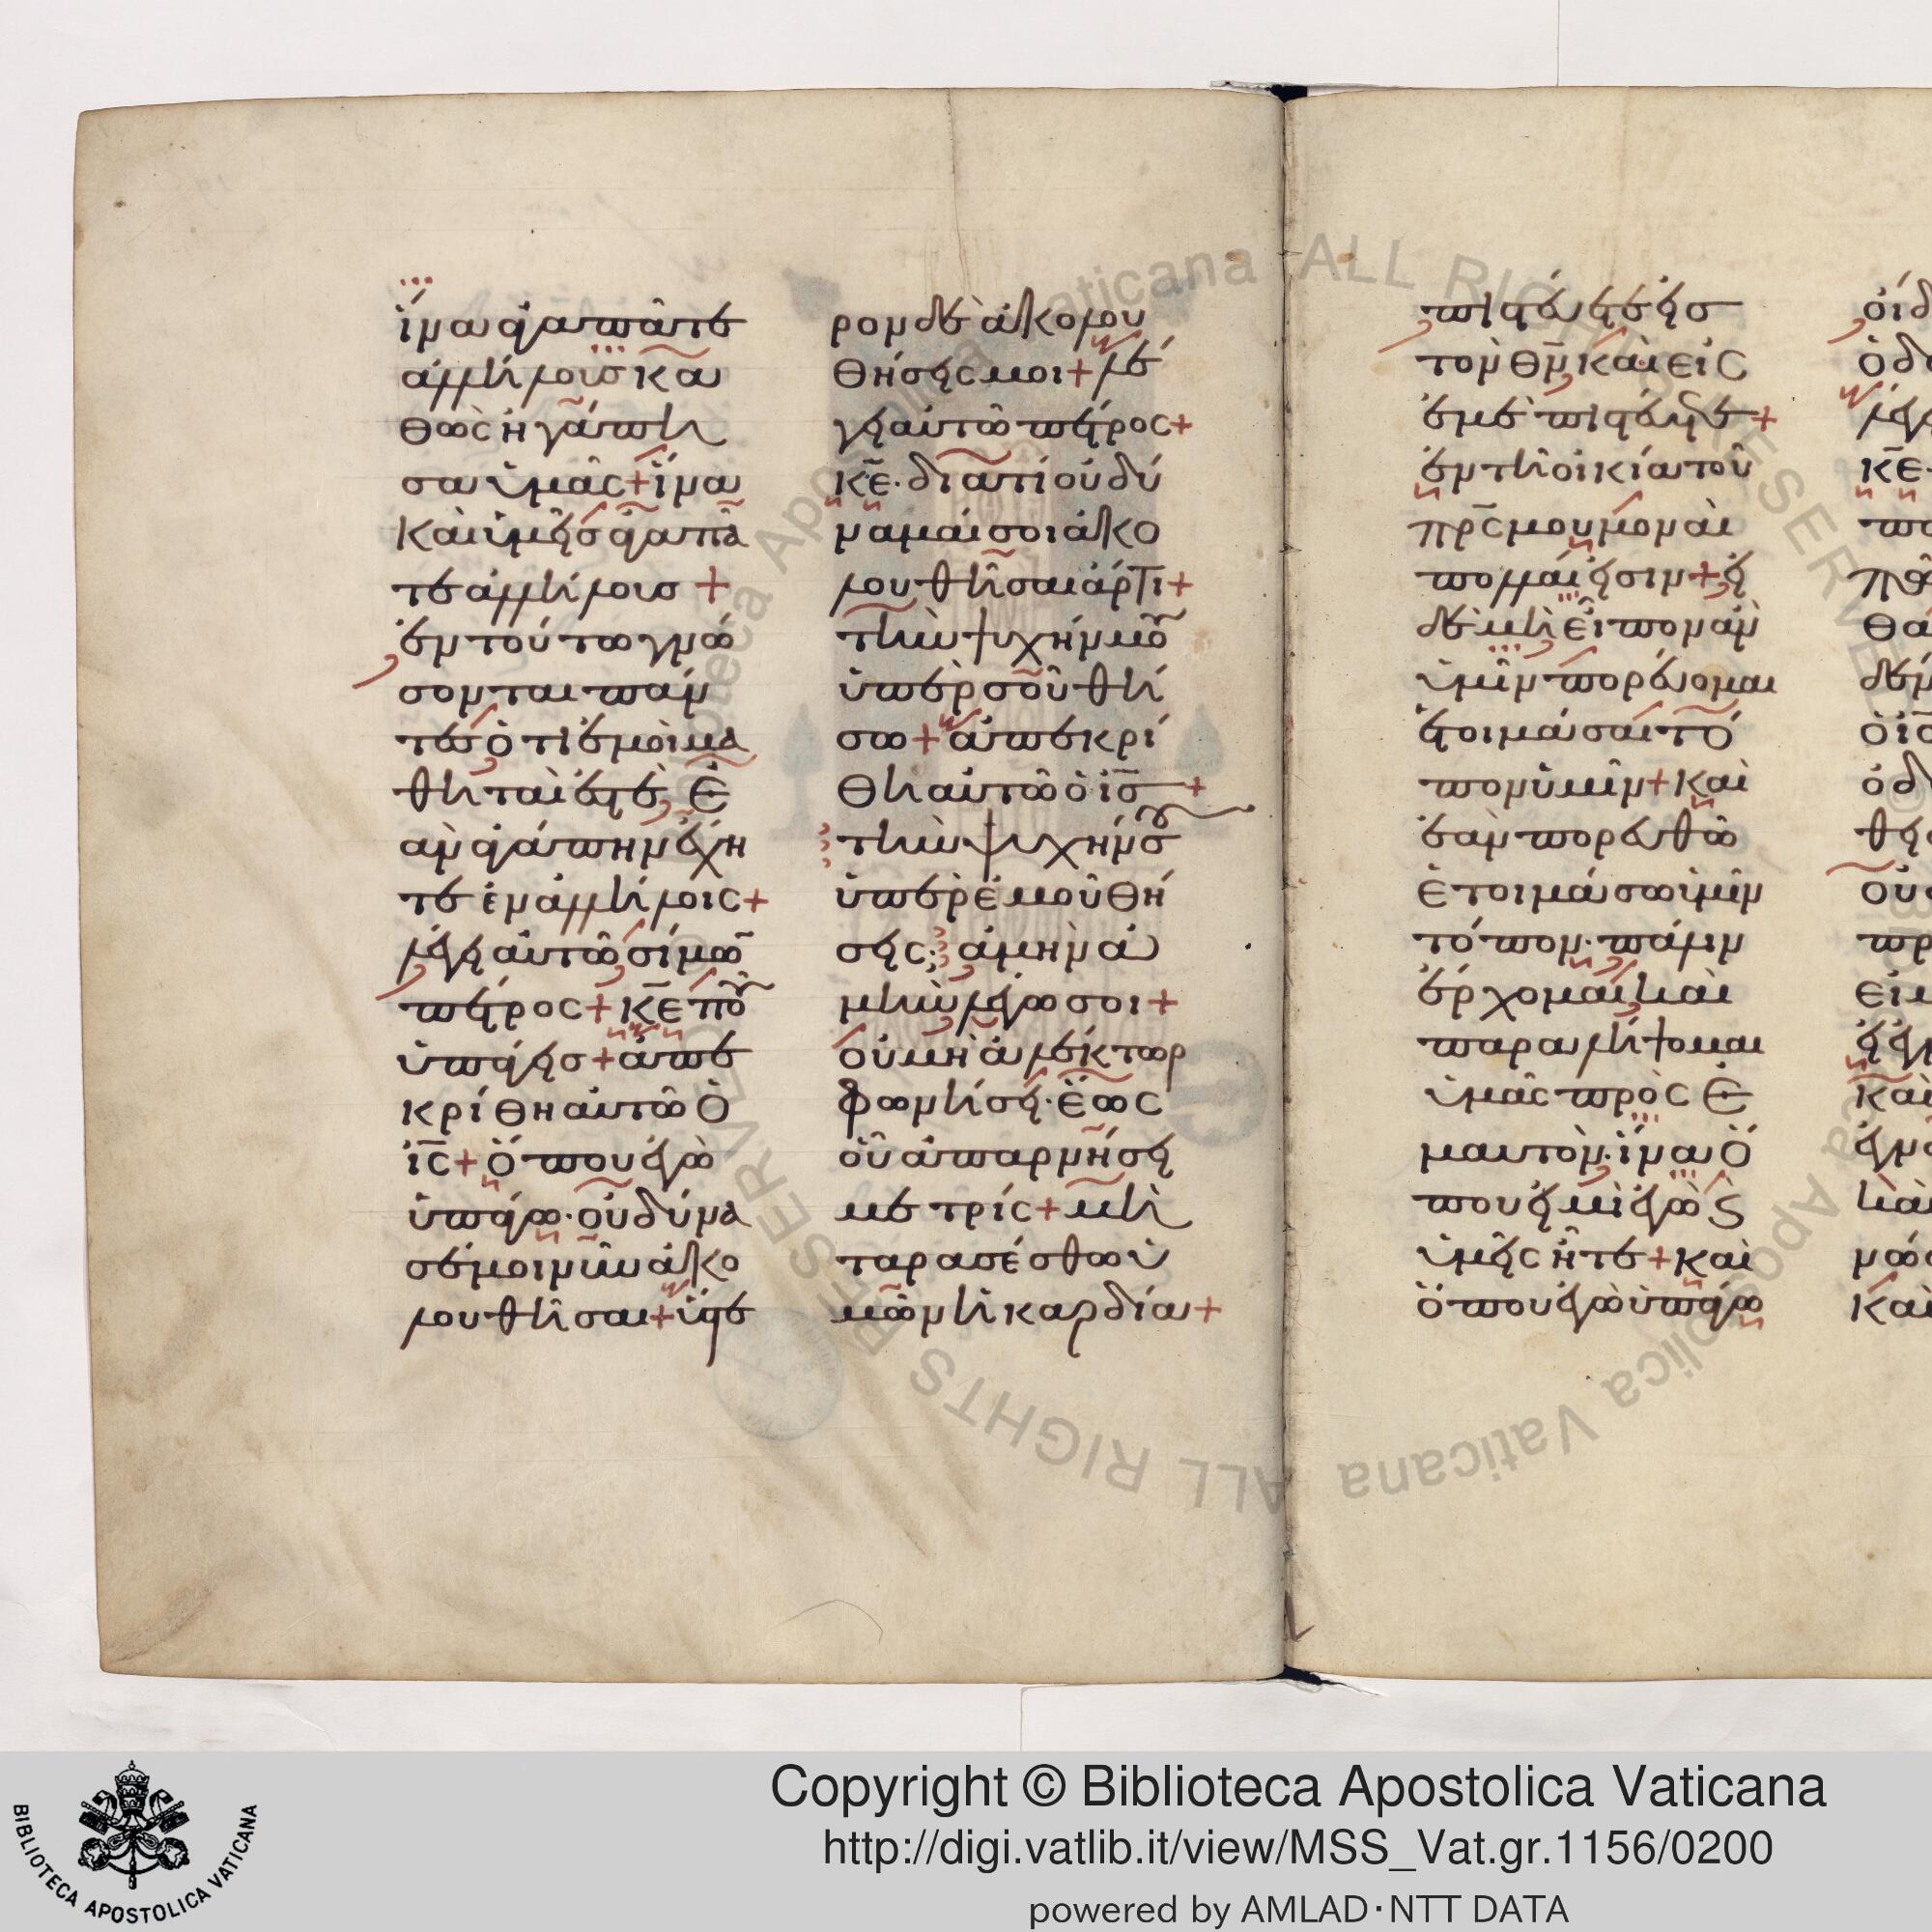 ἵνα ἀγαπᾶτε
ἀλλήλους κα
θὼς ἠγάπη
σα ὑμᾶς + ἵνα
καὶ ὑμεῖς ἀγαπᾶ
τε ἀλλήλους +
ἐν τούτω γνώ
σονται πάν
τες ὅτι ἐμοὶ μα
θηταὶ ἐστὲ ἐ
ὰν ἀγάπην ἔχη
τε ἐν ἀλλήλοις +
λέγει αὐτῶ σίμων
πέτρος + κ̅ε̅ ποῦ
ὑπάγεις + ἀπε
κρίθη αὐτῶ ὁ
ι̅ς̅ + ὅπου ἐγὼ
ὑπάγω · οὐ δύνα
σέ μοι νῦν ἀκο
λουθῆσαι + ὕστε
ρον δὲ ἀκολου
θήσεις μοι + λέ
γει αὐτῶ πέτρος +
κ̅ε̅ · διατί οὐ δύ
ναμαί σοι ἀκο
λουθῆσαι ἄρτι +
τὴν ψυχήν μου
ὑπὲρ σοῦ θή
σω + ἀπεκρί
θη αὐτῶ ὁ ι̅ς̅ +
τὴν ψυχήν σου
ὑπὲρ ἐμοῦ θή
σεις; ἀμὴν ἀ
μὴν λέγω σοι +
οὐ μὴ ἀλέκτωρ
φωνήσει · ἕως
οὗ ἀπαρνήσει
με τρίς + μὴ
ταρασέσθω ὑ
μῶν ἡ καρδία +
πιστεύετε εἰς
τὸν θ̅ν̅ καὶ εἰς
ἐμὲ πιστεύετε +
ἐν τῆ οἰκία τοῦ
π̅ρ̅ς̅ μου μοναὶ
πολλαί εἰσιν + εἰ
δὲ μὴ εἶπον ἂν
ὑμῖν πορεύομαι
ἑτοιμάσαι τό
πον ὑμῖν + καὶ
ἐὰν πορευθῶ
ἑτοιμάσω ὑμῖν
τόπον · πάλιν
ἔρχομαι καὶ
παραλήψομαι
ὑμᾶς πρὸς ἐ
μαυτόν · ἵνα ὅ
που εἰμὶ ἐγὼ καὶ
ὑμεῖς ἦτε + καὶ
ὅπου ἐγὼ ὑπάγω
Copyright © Biblioteca Apostolica Vaticana
http://digi.vatlib.it/view/MSS_Vat.gr.1156/0200
powered by AMLAD·NTT DATA
BIBLIOTECA APOSTOLICA VATICANA